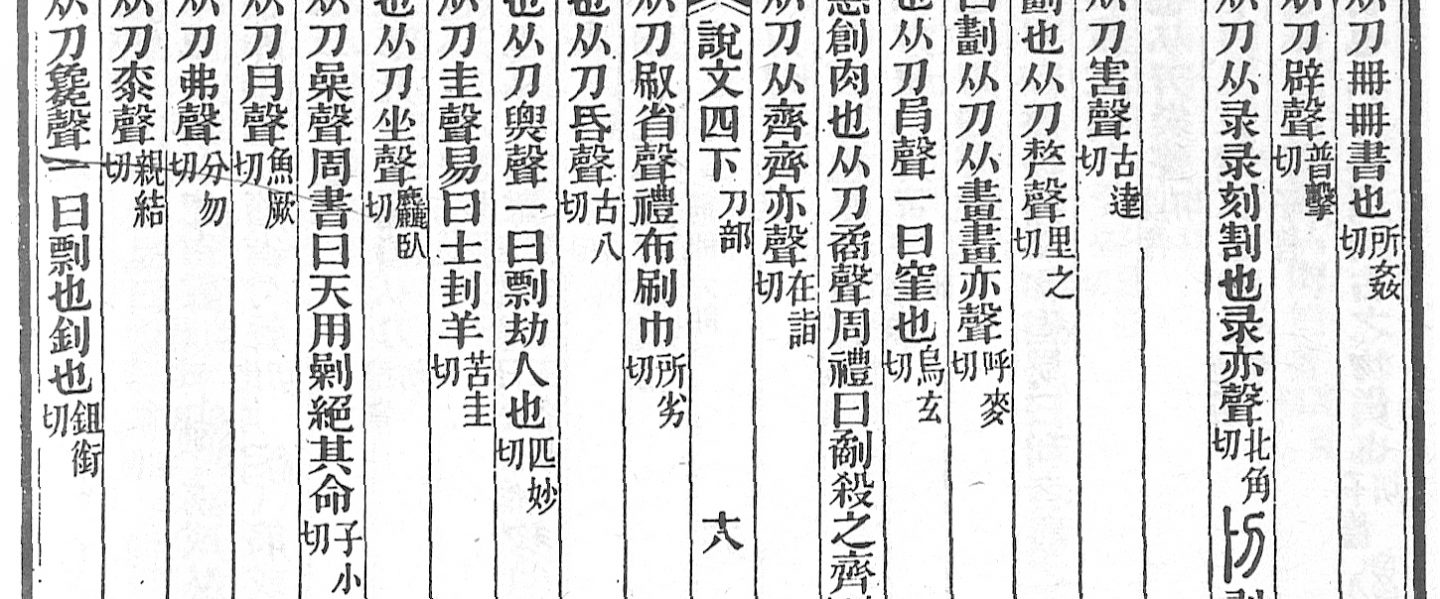 从刀冊冊書也所姦切
从刀辟聲普擊切
从刀从彔彔刻割也彔亦聲北角切
从刀害聲古達切
劃也从刀𠩺聲里之切
曰劃从刀从畫畫亦聲呼麥切
也从刀肙聲一曰窐也烏玄切
惡創肉也从刀矞聲周禮曰劀殺之齊
从刀从齊齊亦聲在詣切
說文四下 刀部 十八
从刀㕞省聲禮布刷巾所劣切
也从刀昏聲古八切
也从刀聲一曰剽劫人也匹妙切
从刀圭聲易曰士刲羊苦圭切
也从刀坐聲麤臥切
从刀喿聲周書曰天用劋絕其命子小切
从刀月聲魚厥切
从刀弗聲分勿切
从刀桼聲親結切
从刀毚聲一曰剽也釗也鉏銜切